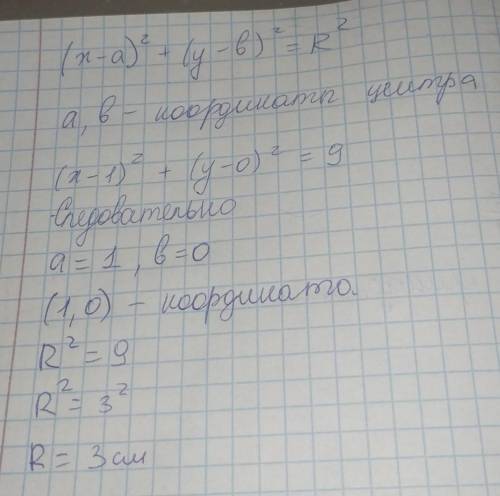 (x-a)² + (y-в)² = R²
a, в - координаты центра
(x-1)² + (y-0)² = 9
Следовательно
a = 1, в=0
(1,0) - координата.
R² = 9
R² = 3²
R = 3 см